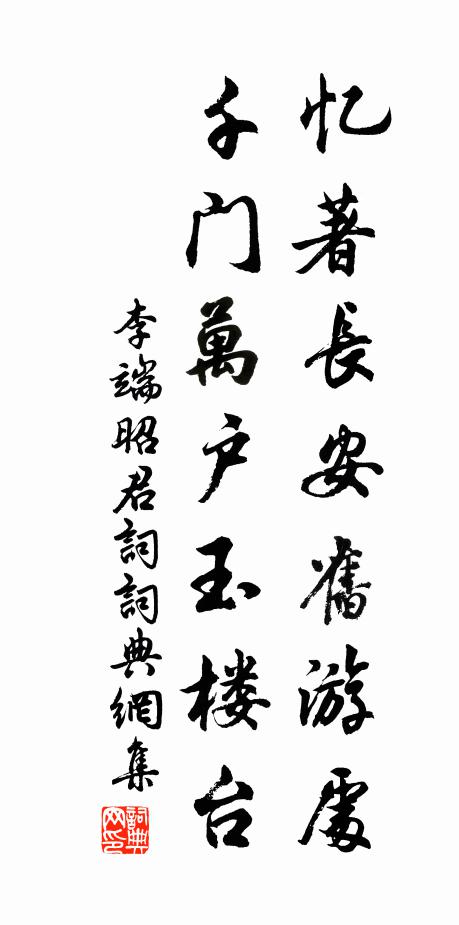 忆著長安舊游處
千门萬户玉楼台
李端昭君詞詞典網集
詞典网印